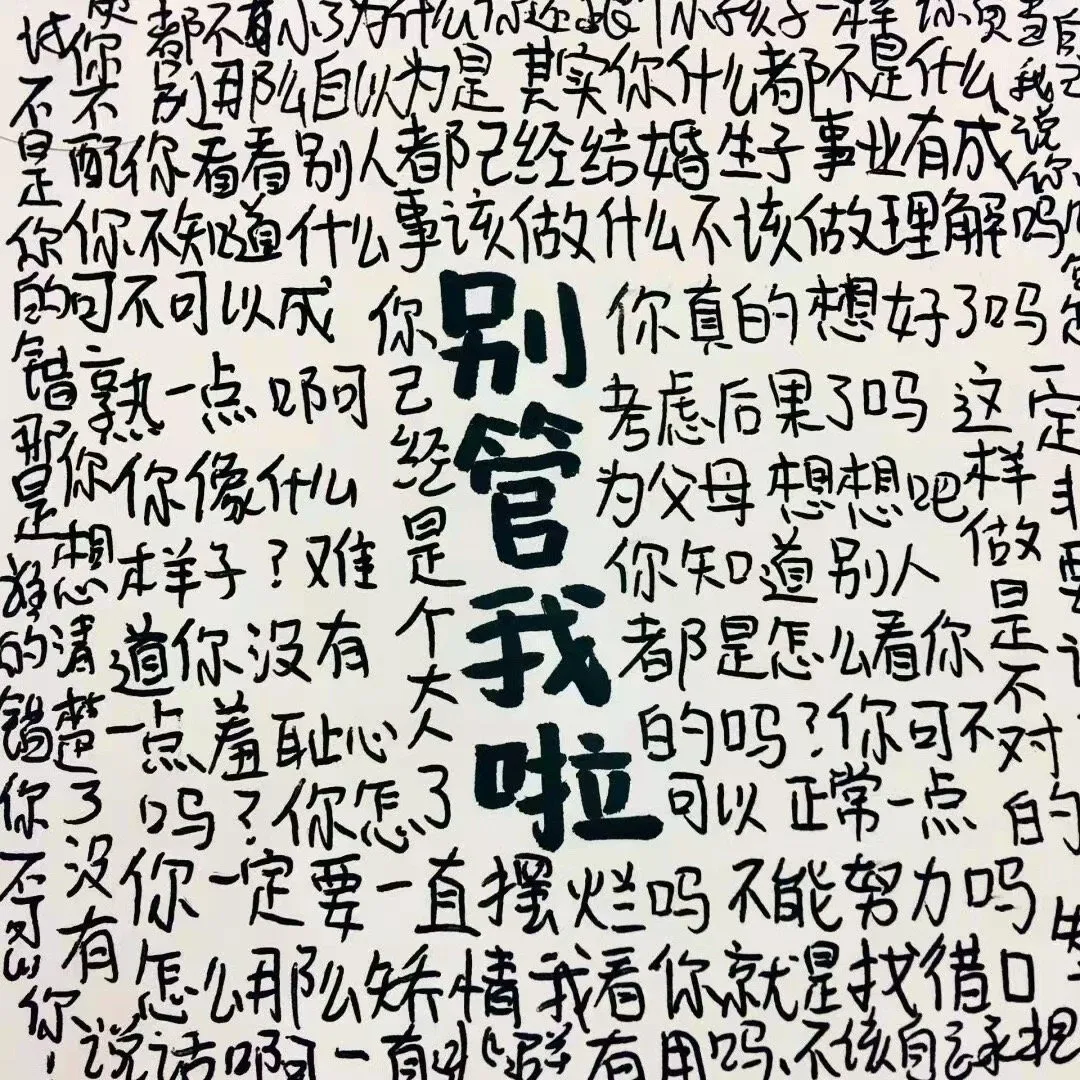 都不有小了为什么你还跟个小孩子一样
别那么自以为是其实你什么都不是什么
不配你看看别人都已经结婚生子事业有成
你不知道什么事该做什么不该做理解吗
可不可以成熟一点啊
你像什么样子?难道你没有一点羞耻心吗?你怎了
你已经是个大人
别管我啦
你真的想好了吗
考虑后果了吗
为父母想想吧
你知道别人
都是怎么看你
的吗?你可不
可以正常一点
这样做是不对的
不是你的错那是谁的错
你想清楚了没有
你一定要一直摆烂吗不能努力吗
怎么那么矫情我看你就是找借口
说话啊一直
有用吗
不该自己承担